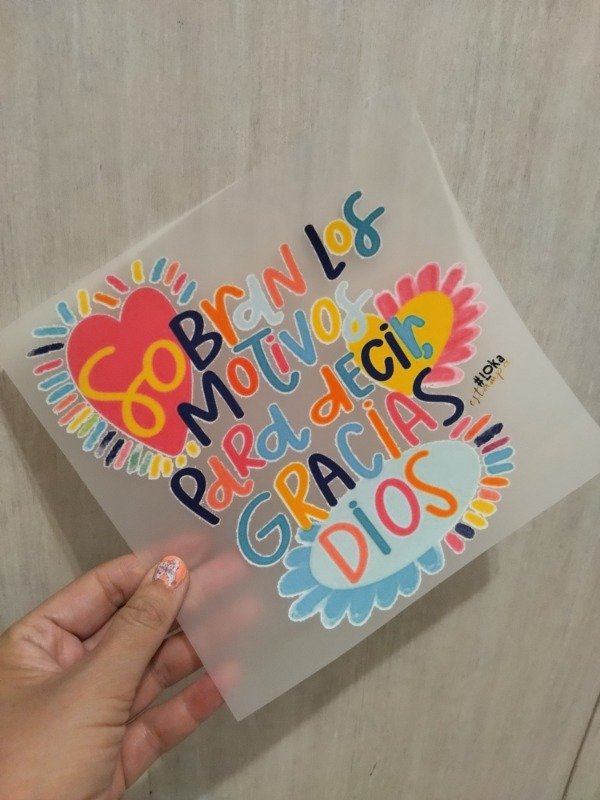 SoBraN Los
MoTiVos
PaRa deCir,
GRACiAS
DiOS
#LOKa
estampa